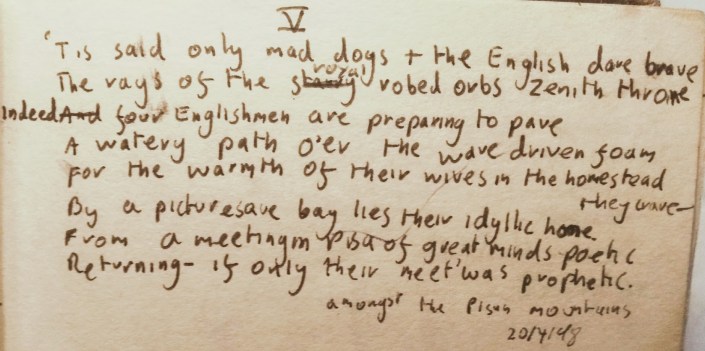 V
'Tis said only mad dogs + the English dare brave
The rays of the starry royal robed orbs zenith throne
Indeed And four Englishmen are preparing to pave
A watery path o'er the wave driven foam
For the warmth of their wives in the homestead
they crave-
By a picturesque bay lies their idyllic home
From a meeting in Pisa of great minds poetic
Returning- if only their meet' was prophetic.
amongst the Pisan mountains
20/4/98